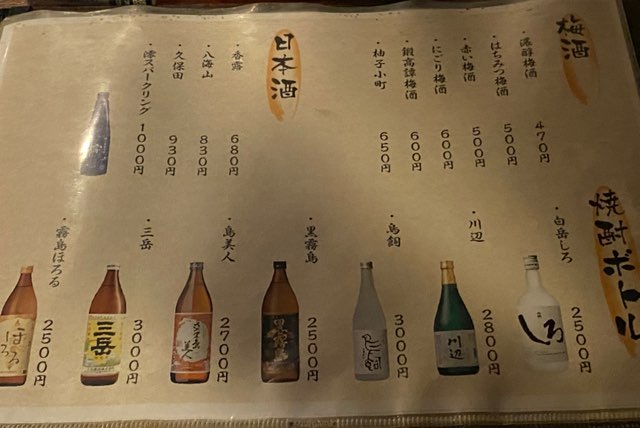 梅酒
・濃醇梅酒 470円
・はちみつ梅酒 500円
・赤い梅酒 500円
・にごり梅酒 600円
・鍛高譚梅酒 600円
・柚子小町 650円
日本酒
・香露 680円
・八海山 830円
・久保田 930円
・澪スパークリング 1000円
焼酎ボトル
・白岳しろ 2500円
しろ
・川辺 2800円
川辺
・鳥飼 3000円
・黒霧島 2500円
黒霧島
・島美人 2700円
美人
・三岳 3000円
三岳
・霧島ほろる 2500円